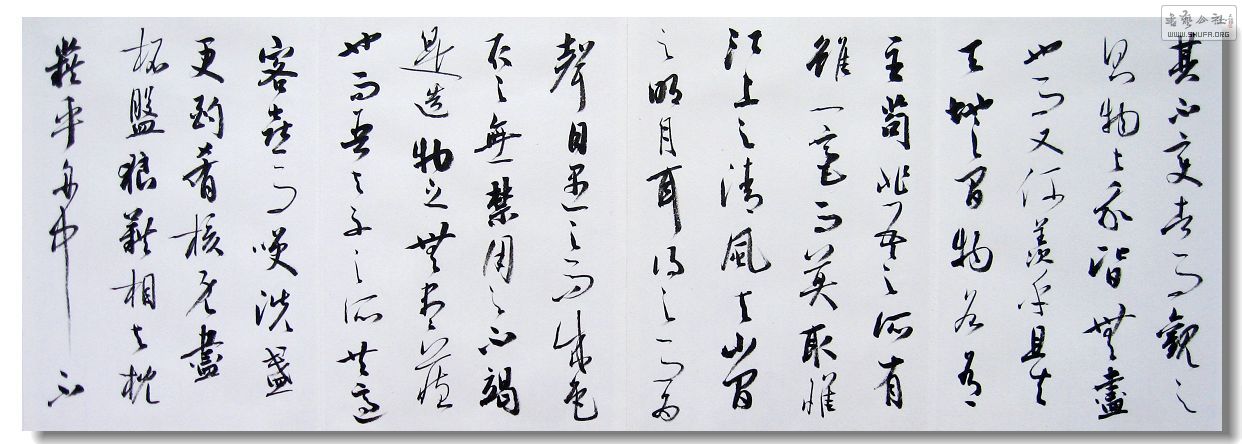 其不變者而觀之
則物與我皆無盡
也而又何羨乎且夫
天地之間物各有
主苟非吾之所有
雖一毫而莫取惟
江上之清風與山間
之明月耳得之而為
聲目遇之而成色
取之無禁用之不竭
是造物之無盡藏
也而吾與子之所共適
客喜而咲洗盞
更酌肴核既盡
杯盤狼藉相與枕
藉乎舟中不
書藝公社
WWW.SHUFA.ORG